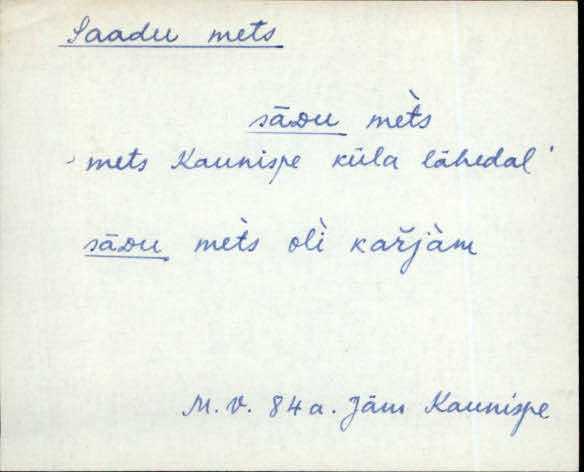 Saadu mets
sāᴅu mèts
'mets Kaunispe küla lähedal'
sāᴅu mèts olì kařjàm
M. V. 84 a. Jäm Kaunispe